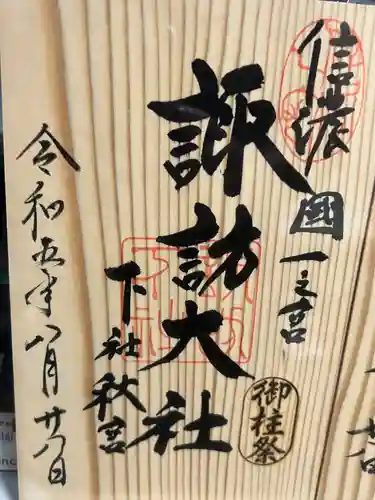 信濃
國一之宮
諏訪大社
下社秋宮
御柱祭
令和五年八月廿八日